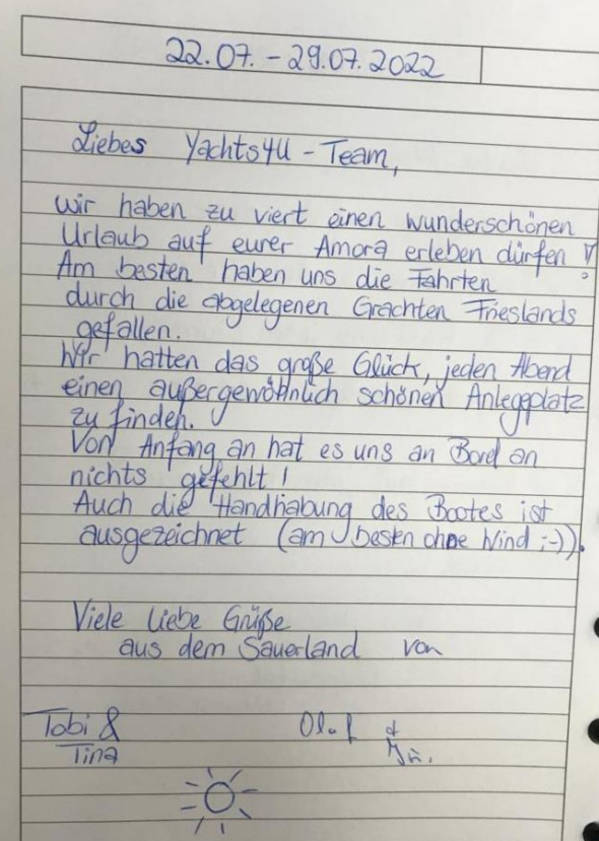 22.07. - 29.07.2022
Liebes Yachts4U - Team,
wir haben zu viert einen wunderschönen
Urlaub auf eurer Amora erleben dürfen !
Am besten haben uns die Fahrten
durch die abgelegenen Grachten Frieslands
gefallen.
Wir hatten das große Glück, jeden Abend
einen außergewöhnlich schönen Anlegeplatz
zu finden.
Von Anfang an hat es uns an Bord an
nichts gefehlt !
Auch die Handhabung des Bootes ist
ausgezeichnet (am besten ohne Wind ;-)).
Viele liebe Grüße
aus dem Sauerland von
Tobi & Olaf &
Tina